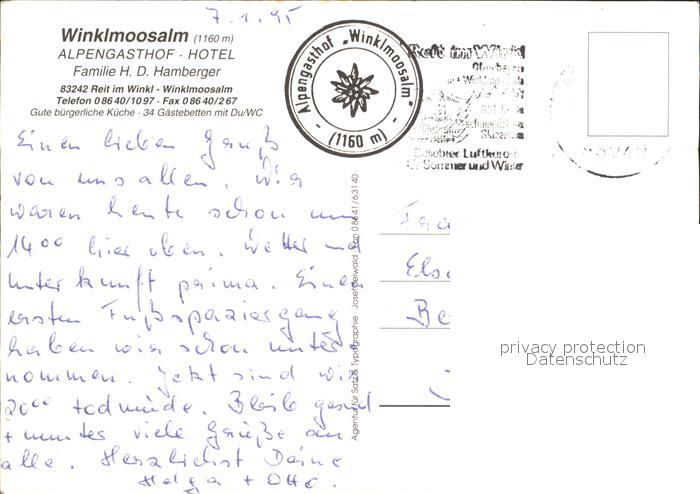 7.1.95
Winklmoosalm (1160 m)
ALPENGASTHOF · HOTEL
Familie H. D. Hamberger
83242 Reit im Winkl - Winklmoosalm
Telefon 0 86 40/10 97 · Fax 0 86 40/2 67
Gute bürgerliche Küche · 34 Gästebetten mit Du/WC
Alpengasthof „Winklmoosalm"
- (1160 m) -
Reit im Winkl
Beliebter Luftkurort
Sommer und Winter
Einen lieben Gruß
von uns allen. Wir
waren heute schon um
14⁰⁰ hier oben. Wetter und
Unterkunft prima. Einen
ersten Fußspaziergang
haben wir schon unter-
nommen. Jetzt sind wir
20⁰⁰ todmüde. Bleib gesund
+ munter viele Grüße an
alle. Herzlichst Deine
Helga + Otto.
Agentur für Satz & Typographie · Josef Beiwald · Fon 08641/63140
Els
Be
privacy protection
Datenschutz